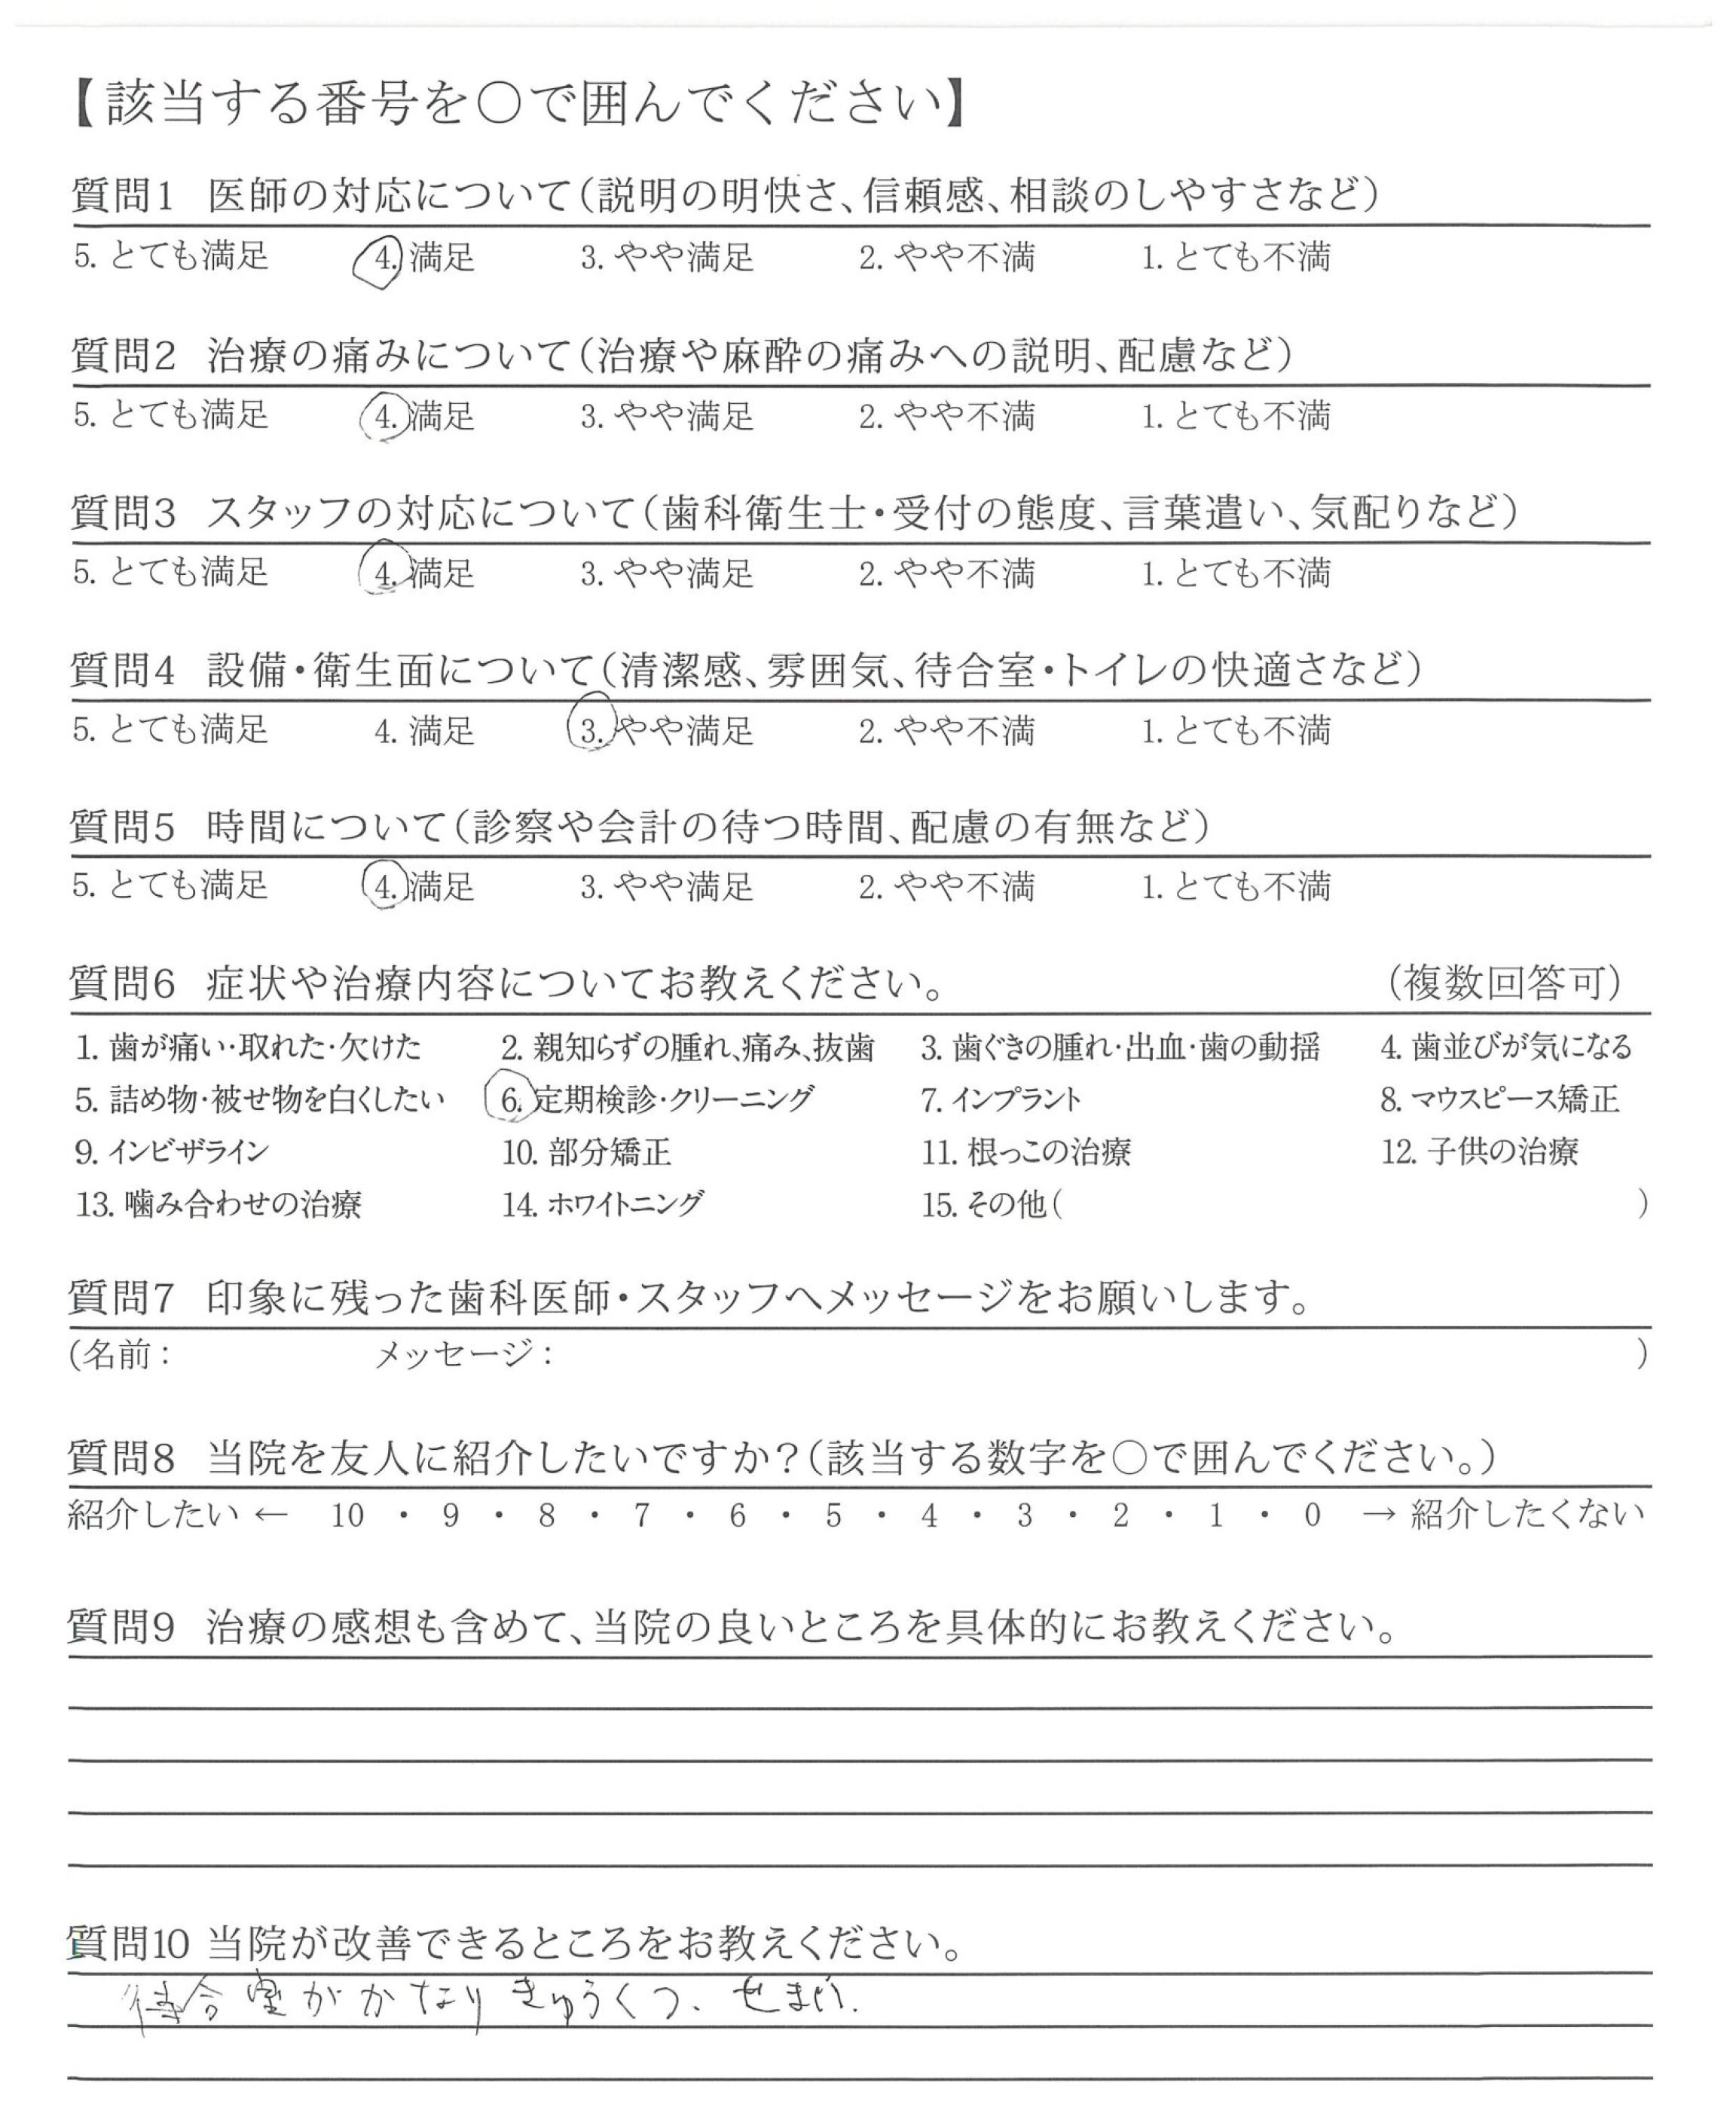 【該当する番号を○で囲んでください】
質問1 医師の対応について(説明の明快さ、信頼感、相談のしやすさなど)
5. とても満足 4. 満足 3. やや満足 2. やや不満 1. とても不満
質問2 治療の痛みについて(治療や麻酔の痛みへの説明、配慮など)
5. とても満足 4. 満足 3. やや満足 2. やや不満 1. とても不満
質問3 スタッフの対応について(歯科衛生士・受付の態度、言葉遣い、気配りなど)
5. とても満足 4. 満足 3. やや満足 2. やや不満 1. とても不満
質問4 設備・衛生面について(清潔感、雰囲気、待合室・トイレの快適さなど)
5. とても満足 4. 満足 3. やや満足 2. やや不満 1. とても不満
質問5 時間について(診察や会計の待つ時間、配慮の有無など)
5. とても満足 4. 満足 3. やや満足 2. やや不満 1. とても不満
質問6 症状や治療内容についてお教えください。 (複数回答可)
1. 歯が痛い・取れた・欠けた 2. 親知らずの腫れ、痛み、抜歯 3. 歯ぐきの腫れ・出血・歯の動揺 4. 歯並びが気になる
5. 詰め物・被せ物を白くしたい 6. 定期検診・クリーニング 7. インプラント 8. マウスピース矯正
9. インビザライン 10. 部分矯正 11. 根っこの治療 12. 子供の治療
13. 噛み合わせの治療 14. ホワイトニング 15. その他( )
質問7 印象に残った歯科医師・スタッフへメッセージをお願いします。
(名前: メッセージ: )
質問8 当院を友人に紹介したいですか?(該当する数字を○で囲んでください。)
紹介したい ← 10 ・ 9 ・ 8 ・ 7 ・ 6 ・ 5 ・ 4 ・ 3 ・ 2 ・ 1 ・ 0 → 紹介したくない
質問9 治療の感想も含めて、当院の良いところを具体的にお教えください。
質問10 当院が改善できるところをお教えください。
待合室がかなりきゅうくつ、せまい.